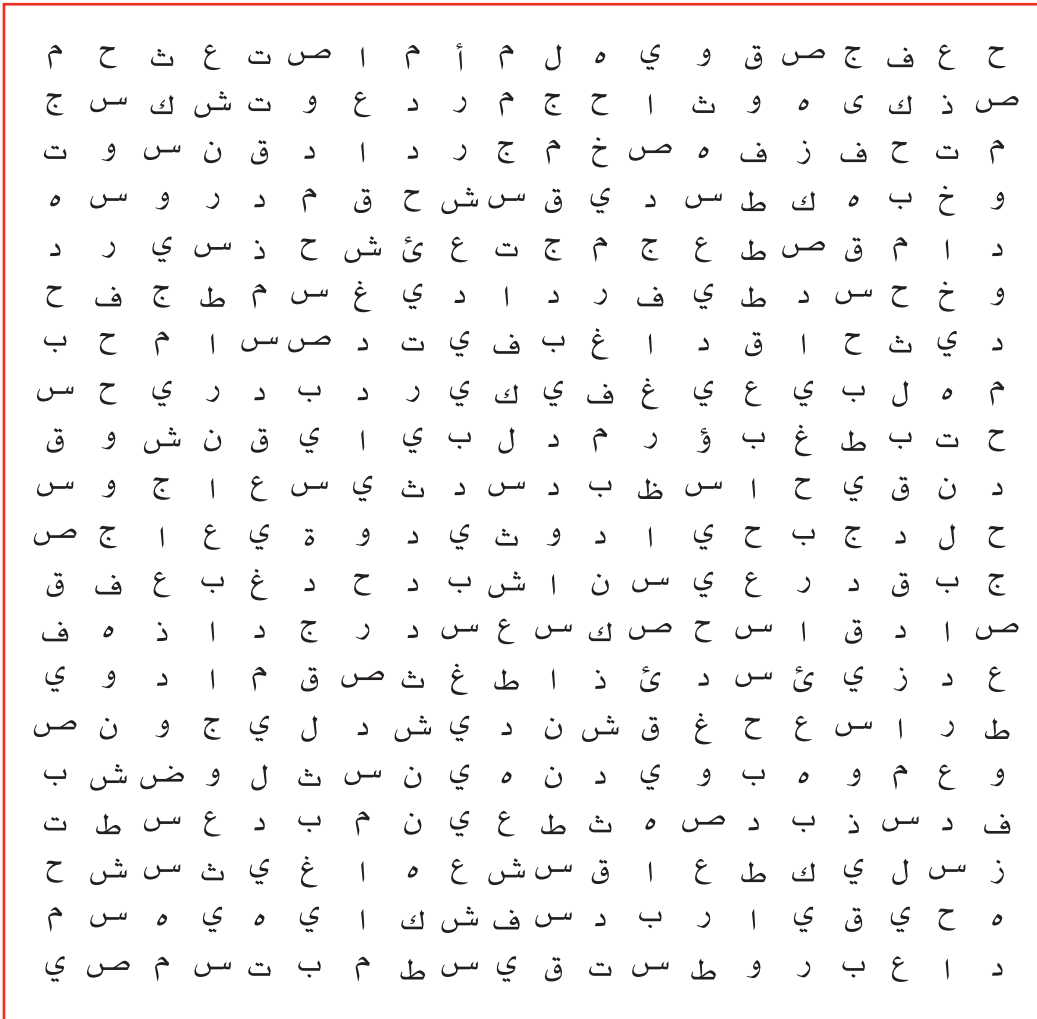 ح ع ف ج ص ق و ي ه ل م أ م ا ص ت ع ث ح م
ص ذ ك ى ه و ث ا ح ج م ر د ع و ت ش ك س ج
م ت ح ف ز ف ه ص خ م ج ر د ا د ق ن س و ت
و خ ب ه ك ط س د ي ق س ش ح ق م د ر و س ه
د ا م ق ص ط ع ج م ج ت ع ئ ش ح ذ س ي ر د
و خ ح س د ط ي ف ر د ا د ي غ س م ط ج ف ح
د ي ث ح ا ق د ا غ ب ف ي ت د ص س ا م ح ب
م ه ل ب ي ع ي غ ف ي ك ي ر د ب د ر ي ح س
ح ت ب ط غ ب ؤ ر م د ل ب ي ا ي ق ن ش و ق
د ن ق ي ح ا س ظ ب د س د ث ي س ع ا ج و س
ح ل د ج ب ح ي ا د و ث ي د و ة ي ع ا ج ص
ج ب ق د ر ع ي س ن ا ش ب د ح د غ ب ع ف ق
ص ا د ق ا س ح ص ك س ع س د ر ج د ا ذ ه ف
ع د ز ي ئ س د ئ ذ ا ط غ ث ص ق م ا د و ي
ط ر ا س ع ح غ ق ش ن د ي ش د ل ي ج و ن ص
و ع م و ه ب و ي د ن ه ي ن س ث ل و ض ش ب
ف د س ذ ب د ص ه ث ط ع ي ن م ب د ع س ط ت
ز س ل ي ك ط ع ا ق س ش ع ه ا غ ي ث س ش ح
ه ح ي ق ي ا ر ب د س ف ش ك ا ي ه ي ه س م
د ا ع ب ر و ط س ت ق ي س ط م ب ت س م ص ي